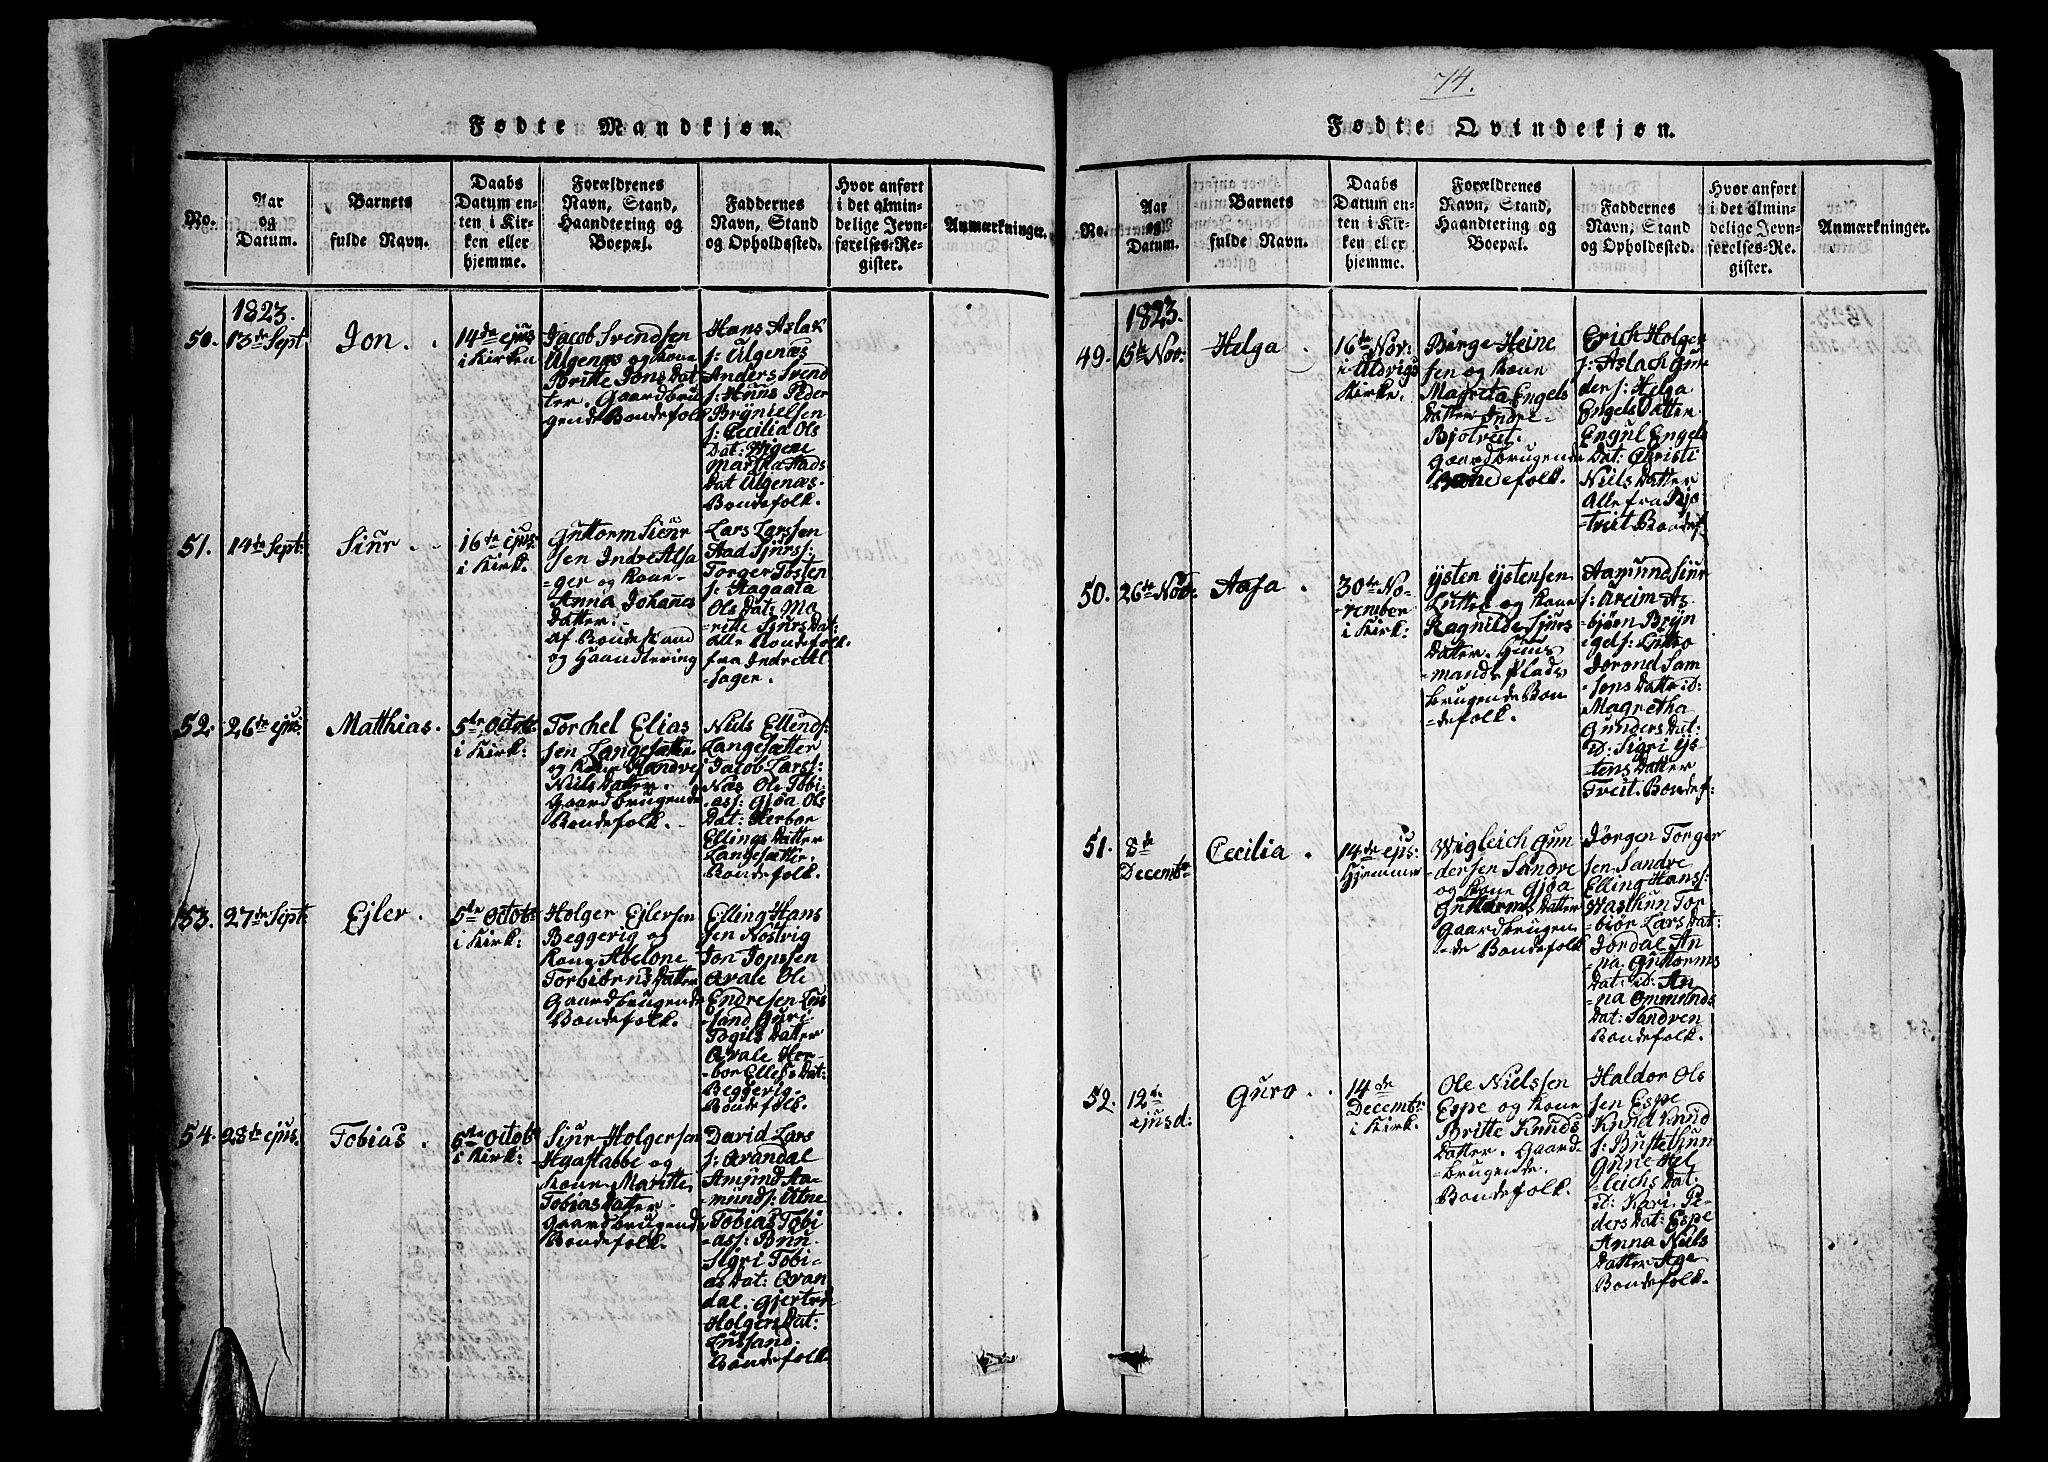 74.
Fødte Mandkjøn.
No.
Aar
og
Datum.
Barnets
fulde Navn.
Daabs
Datum en-
ten i Kir-
ken eller
hjemme.
Forældrenes
Navn, Stand,
Haandtering og
Boepæl.
Faddernes
Navn, Stand
og Opholdssted.
Hvor anført
i det almin-
delige Jevn-
førelses-Re-
gister.
Anmærkninger.
1823.
50. 13de Sept
Jon.
14de ejus
i Kirken
Jacob Svendsen
Ulgenæs og Kone
Britte Jons Dat
ter. Gaardbru
gende Bondefolk
Hans Aslak
s: Ulgenæs
Anders Svend
s: Huus Peder
Brynielsen
s: Cecilia Ols
Dat:
Martha Aads
Dat Ulgenæs-
Bondefolk.
51. 14de Sept:
Siur
16de ejus:
i Kirk.
Guttorm Siur
sen Indre Alsa
=ger og Kone-
Anna Johanes
Datter.-
af Bondestand
og Haandtering
Lars Larssen
Aad Sjurs:
Torger Tosten
s: Aagaata
Ols Dat: Ma
=ritte Sjurs Dat:
alle Bondefolk
fra Indre Al
=sager.
52. 26de ejus:
Matthias.
5te Octob:
i Kirk:
Torchel Elias
sen Langesætter
og Kone Randvei
Niels Datter.
Gaardbrugende
Bondefolk.-
Niels Ellends:
Langesætter
Jacob Lars:
Næs Ole Tobi
-as: Gjøa Ols
Dat: Herbor
Ellings Datter
Langesætter.
Bondefolk.
53. 27de Sept:
Ejler.
5te Octob:
i Kirk:
Holger Ejlersen
Beggerig og
Kone Abelone
Torbiørns Datter
Gaardbrugende
Bondefolk.
Elling Hans
sen Nostvig
Jon Jonssen
Qvale Ole
Endresen Lus
=sand Guri
Togils Datter
Qvale Her-
bor Ellefs Dat:
Beggerig.
Bondefolk.
54. 28de ejus.
Tobias.
5te Octob:
i Kirk:
Siur Holgersen
Haastabbe og
Kone Maritte
Tobias Datter.
Gaardbrugende
Bondefolk.
David Lars
s: Qvandal
Amund Aa-
munds: Utne
Tobias Tobi
=as: Bruu.
Sigri Tobi-
as Dat: Qvan
dal. Gjertrd
Holgers Dat:
Lussand.
Bondefolk
Fødte Qvindekjøn.
No.
Aar
og
Datum.
Barnets
fulde Navn.
Daabs
Datum en-
ten i Kir-
ken eller
hjemme.
Forældrenes
Navn, Stand,
Haandtering og
Boepæl.
Faddernes
Navn, Stand
og Opholdssted.
Hvor anført
i det almin-
delige Jevn-
førelses-Re-
gister.
Anmærkninger.
1823.
49. 15de Nov:
Helga.
16de Nov:
i Uldvigs
Kirke.
Børge Heine
sen og Kone
Magreta Engels
Datter Indre-
Bjotveit.
Gaardbrugende
Bondefolk.
Erich Holger
s: Aslach Gun
ders: Helga
Engels Datter
Engul Engels
Dat: Christi
Niels Datter
Alle fra Bjo
=tveit Bondef.
50. 26de Nov:
Aasa.
30te No-
=vember
i Kirk:
Ysten Ystensen
Lutto og Kone
Ragnilde Sjurs
Datter. Huus
mands Plads
brugende Bon
=defolk.
Aamund Siur
s: Areim As
biørn Bryn
igels: Lutto
Jorond Sam
=sons Datter id:
Magretha
Gunders Dat:
id: Sigri Ys-
=tens Datter
Tveit. Bondef:
51. 8de
Decembr
Cecilia.
14de ejus:
Hjemme
Wigleich Gun
dersen Sandve
og Kone Gjøa
Guttorms Datter
Gaardbrugen
=de Bondefolk
Jørgen Torger
sen Sandve
Elling Hans:
Wasthun Tor
=biør Lars Dat:
Jordal An
na Guttorms
Dat: id: An
=na Ommunds
Dat: Sandven
Bondefolk.
52. 12te
ejusd:
Guro.
14de
Decembr
i Kirk:
Ole Nielssen
Espe og Kone
Britte Knuds
Datter. Gaard
=brugende.
Bondefolk.
Haldor Ols
sen Espe
Knud Knud
s: Bustethun
Gune Hel
=leichs Dat:
id: Kari Pe-
ders Dat: Espe
Anna Niels
Datter Age
Bondefolk.